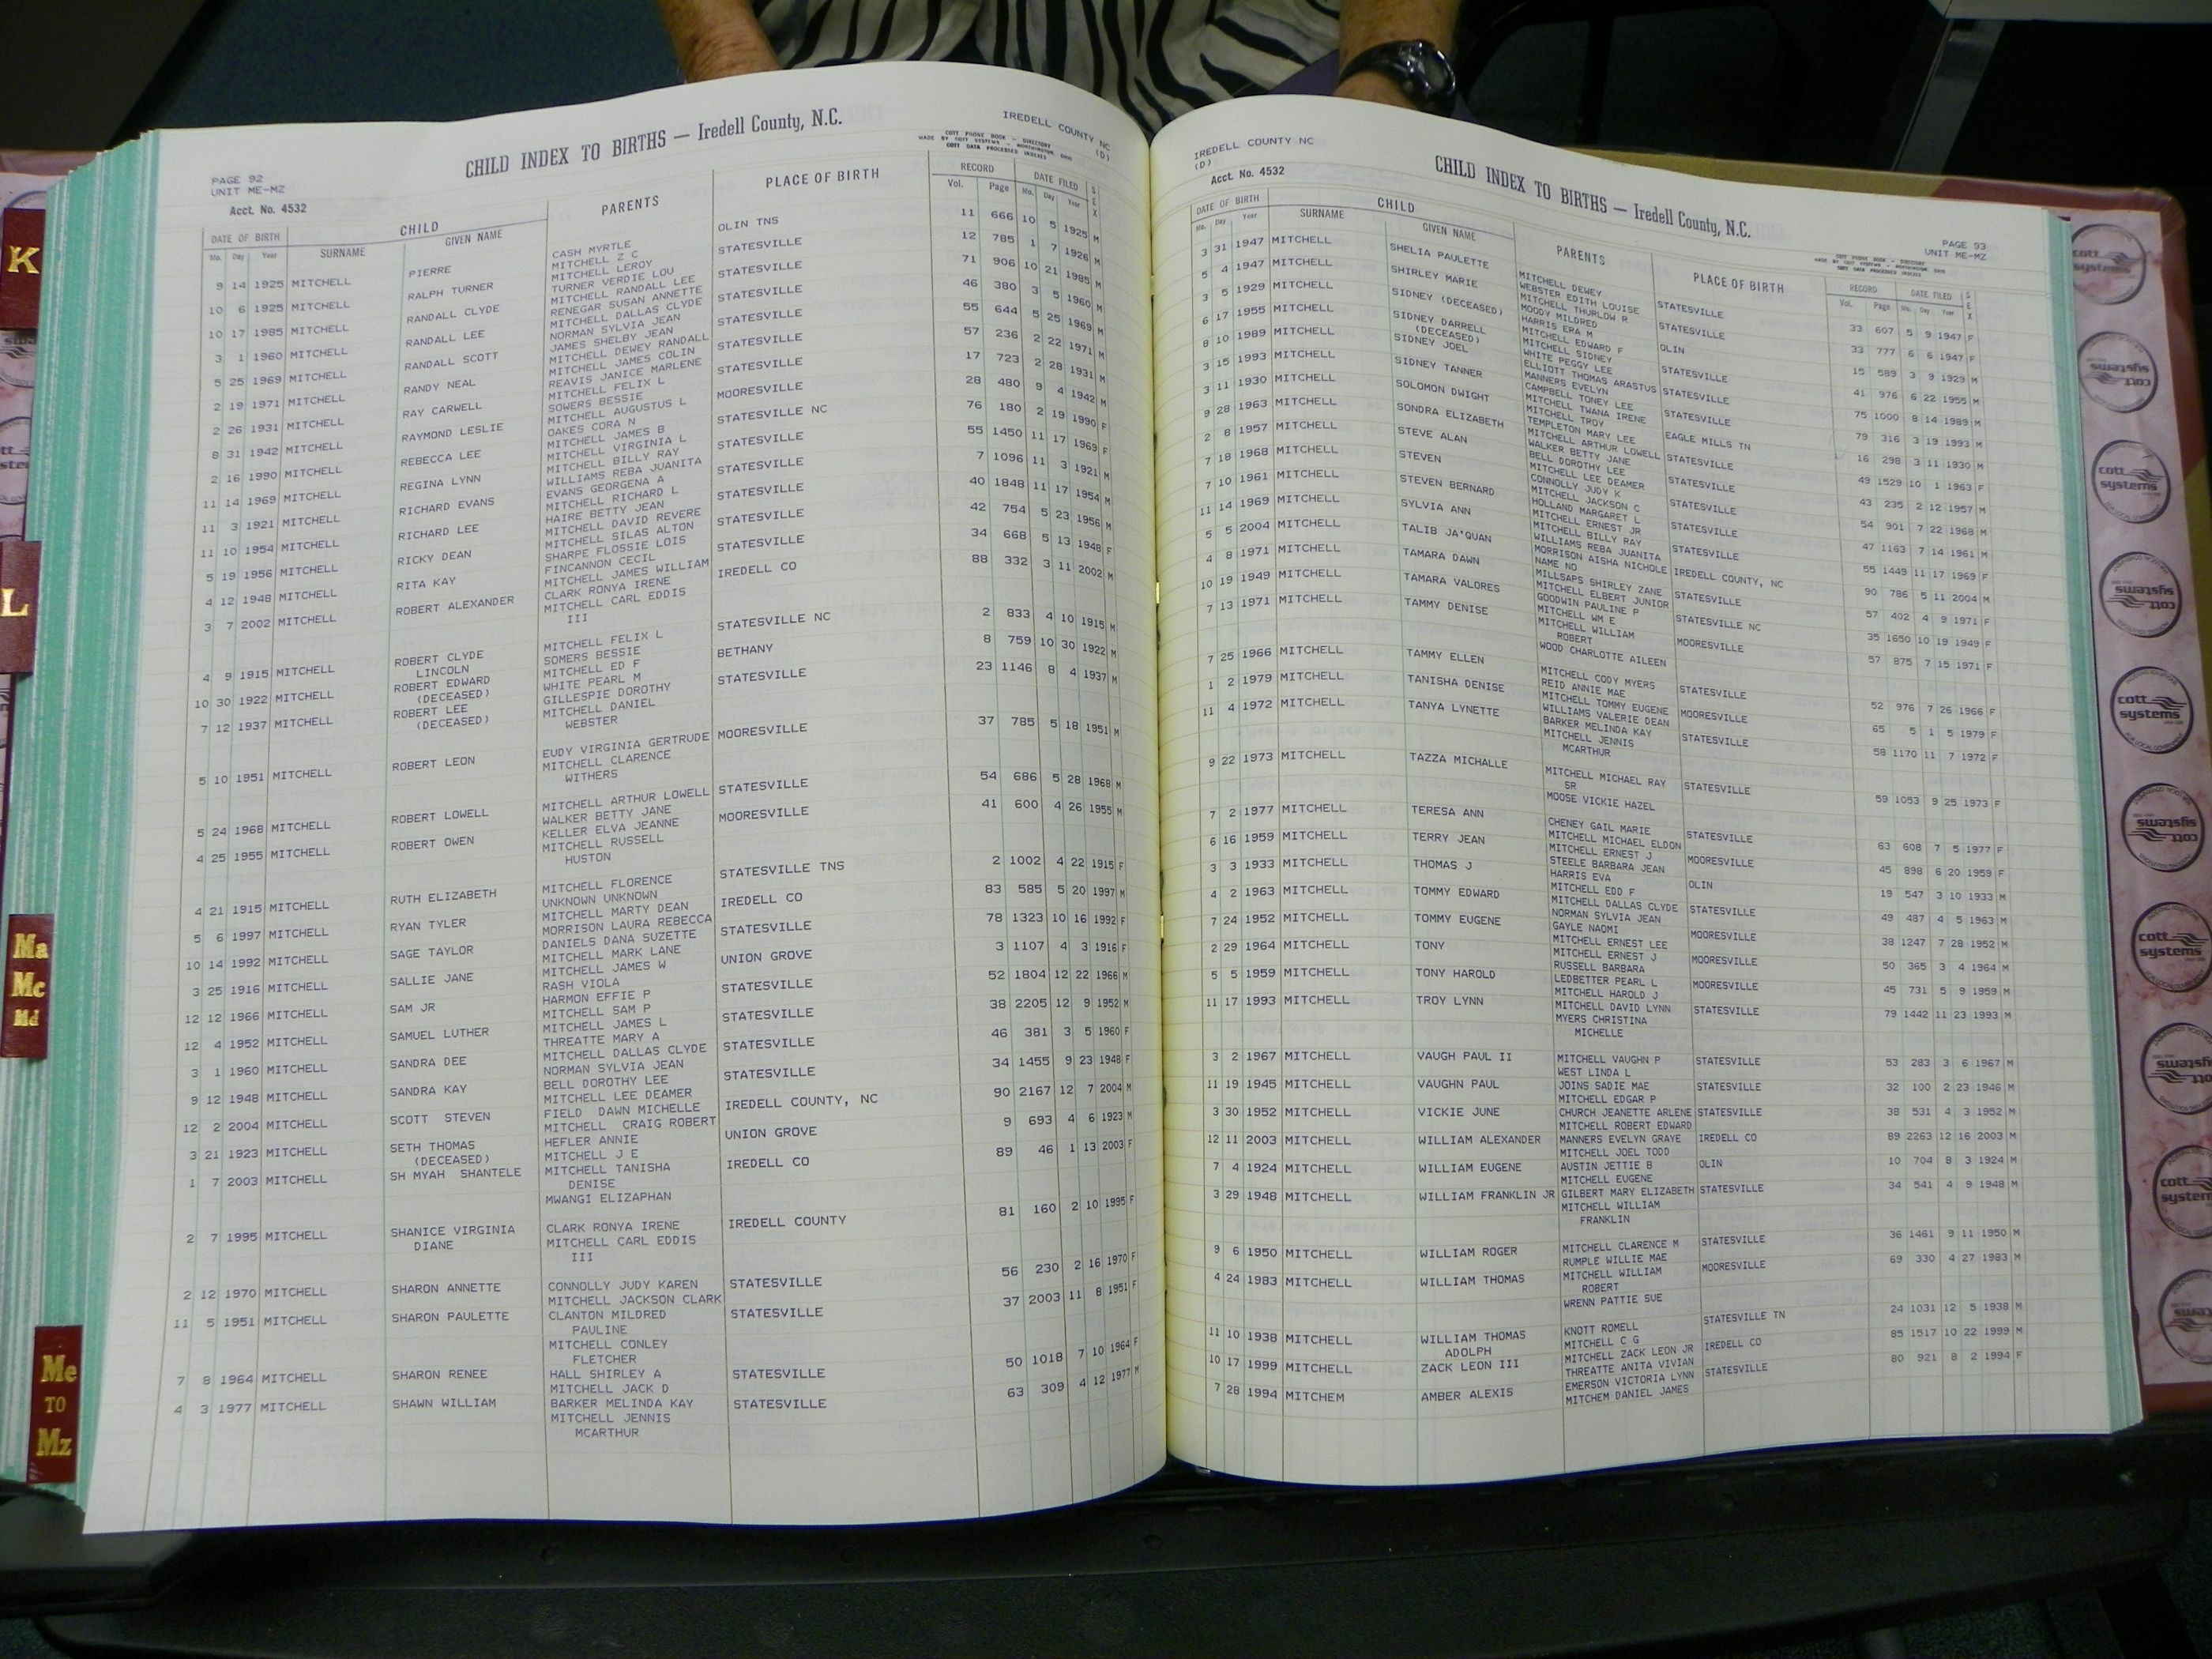 K
L
Ma
Mc
Md
Me
TO
Mz
CHILD INDEX TO BIRTHS — Iredell County, N.C.
IREDELL COUNTY NC
(D)
COTT PHONE BOOK - DIRECTORY
MADE BY COTT SYSTEMS - WORTHINGTON, OHIO
COTT DATA PROCESSED INDEXES
PAGE 92
UNIT ME-MZ
Acct. No. 4532
DATE OF BIRTH CHILD PARENTS PLACE OF BIRTH RECORD DATE FILED SEX
Mo. Day Year SURNAME GIVEN NAME Vol. Page Mo. Day Year
9 14 1925 MITCHELL PIERRE CASH MYRTLE OLIN TNS 11 666 10 5 1925 M
MITCHELL Z C
10 6 1925 MITCHELL RALPH TURNER MITCHELL LEROY STATESVILLE 12 785 1 7 1926 M
TURNER VERDIE LOU
10 17 1985 MITCHELL RANDALL CLYDE MITCHELL RANDALL LEE STATESVILLE 71 906 10 21 1985 M
RENEGAR SUSAN ANNETTE
3 1 1960 MITCHELL RANDALL LEE MITCHELL DALLAS CLYDE STATESVILLE 46 380 3 5 1960 M
NORMAN SYLVIA JEAN
5 25 1969 MITCHELL RANDALL SCOTT JAMES SHELBY JEAN STATESVILLE 55 644 5 25 1969 M
MITCHELL DEWEY RANDALL
2 19 1971 MITCHELL RANDY NEAL MITCHELL JAMES COLIN STATESVILLE 57 236 2 22 1971 M
REAVIS JANICE MARLENE
2 26 1931 MITCHELL RAY CARWELL MITCHELL FELIX L STATESVILLE 17 723 2 28 1931 M
SOWERS BESSIE
8 31 1942 MITCHELL RAYMOND LESLIE MITCHELL AUGUSTUS L MOORESVILLE 28 480 9 4 1942 M
OAKES CORA N
2 16 1990 MITCHELL REBECCA LEE MITCHELL JAMES B STATESVILLE NC 76 180 2 19 1990 F
MITCHELL VIRGINIA L
11 14 1969 MITCHELL REGINA LYNN MITCHELL BILLY RAY STATESVILLE 55 1450 11 17 1969 F
WILLIAMS REBA JUANITA
11 3 1921 MITCHELL RICHARD EVANS EVANS GEORGENA A STATESVILLE 7 1096 11 3 1921 M
MITCHELL RICHARD L
11 10 1954 MITCHELL RICHARD LEE HAIRE BETTY JEAN STATESVILLE 40 1848 11 17 1954 M
MITCHELL DAVID REVERE
5 19 1956 MITCHELL RICKY DEAN MITCHELL SILAS ALTON STATESVILLE 42 754 5 23 1956 M
SHARPE FLOSSIE LOIS
4 12 1948 MITCHELL RITA KAY FINCANNON CECIL STATESVILLE 34 668 5 13 1948 F
MITCHELL JAMES WILLIAM
3 7 2002 MITCHELL ROBERT ALEXANDER CLARK RONYA IRENE IREDELL CO 88 332 3 11 2002 M
MITCHELL CARL EDDIS
III
4 9 1915 MITCHELL ROBERT CLYDE MITCHELL FELIX L STATESVILLE NC 2 833 4 10 1915 M
LINCOLN SOMERS BESSIE
10 30 1922 MITCHELL ROBERT EDWARD MITCHELL ED F BETHANY 8 759 10 30 1922 M
(DECEASED) WHITE PEARL M
7 12 1937 MITCHELL ROBERT LEE GILLESPIE DOROTHY STATESVILLE 23 1146 8 4 1937 M
(DECEASED) MITCHELL DANIEL
WEBSTER
5 10 1951 MITCHELL ROBERT LEON EUDY VIRGINIA GERTRUDE MOORESVILLE 37 785 5 18 1951 M
MITCHELL CLARENCE
WITHERS
5 24 1968 MITCHELL ROBERT LOWELL MITCHELL ARTHUR LOWELL STATESVILLE 54 686 5 28 1968 M
WALKER BETTY JANE
4 25 1955 MITCHELL ROBERT OWEN KELLER ELVA JEANNE MOORESVILLE 41 600 4 26 1955 M
MITCHELL RUSSELL
HUSTON
4 21 1915 MITCHELL RUTH ELIZABETH MITCHELL FLORENCE STATESVILLE TNS 2 1002 4 22 1915 F
UNKNOWN UNKNOWN
5 6 1997 MITCHELL RYAN TYLER MITCHELL MARTY DEAN IREDELL CO 83 585 5 20 1997 M
MORRISON LAURA REBECCA
10 14 1992 MITCHELL SAGE TAYLOR DANIELS DANA SUZETTE STATESVILLE 78 1323 10 16 1992 F
MITCHELL MARK LANE
3 25 1916 MITCHELL SALLIE JANE MITCHELL JAMES W UNION GROVE 3 1107 4 3 1916 F
RASH VIOLA
12 12 1966 MITCHELL SAM JR HARMON EFFIE P STATESVILLE 52 1804 12 22 1966 M
MITCHELL SAM P
12 4 1952 MITCHELL SAMUEL LUTHER MITCHELL JAMES L STATESVILLE 38 2205 12 9 1952 M
THREATTE MARY A
3 1 1960 MITCHELL SANDRA DEE MITCHELL DALLAS CLYDE STATESVILLE 46 381 3 5 1960 F
NORMAN SYLVIA JEAN
9 12 1948 MITCHELL SANDRA KAY BELL DOROTHY LEE STATESVILLE 34 1455 9 23 1948 F
MITCHELL LEE DEAMER
12 2 2004 MITCHELL SCOTT STEVEN FIELD DAWN MICHELLE IREDELL COUNTY, NC 90 2167 12 7 2004 M
MITCHELL CRAIG ROBERT
3 21 1923 MITCHELL SETH THOMAS HEFLER ANNIE UNION GROVE 9 693 4 6 1923 M
(DECEASED) MITCHELL J E
1 7 2003 MITCHELL SH MYAH SHANTELE MITCHELL TANISHA IREDELL CO 89 46 1 13 2003 F
DENISE
MWANGI ELIZAPHAN
2 7 1995 MITCHELL SHANICE VIRGINIA CLARK RONYA IRENE IREDELL COUNTY 81 160 2 10 1995 F
DIANE MITCHELL CARL EDDIS
III
2 12 1970 MITCHELL SHARON ANNETTE CONNOLLY JUDY KAREN STATESVILLE 56 230 2 16 1970 F
MITCHELL JACKSON CLARK
11 5 1951 MITCHELL SHARON PAULETTE CLANTON MILDRED STATESVILLE 37 2003 11 8 1951 F
PAULINE
MITCHELL CONLEY
FLETCHER
7 8 1964 MITCHELL SHARON RENEE HALL SHIRLEY A STATESVILLE 50 1018 7 10 1964 F
MITCHELL JACK D
4 3 1977 MITCHELL SHAWN WILLIAM BARKER MELINDA KAY STATESVILLE 63 309 4 12 1977 M
MITCHELL JENNIS
MCARTHUR
IREDELL COUNTY NC
(D)
Acct. No. 4532
CHILD INDEX TO BIRTHS — Iredell County, N.C.
PAGE 93
UNIT ME-MZ
DATE OF BIRTH CHILD PARENTS PLACE OF BIRTH RECORD DATE FILED SEX
Mo. Day Year SURNAME GIVEN NAME Vol. Page Mo. Day Year
3 31 1947 MITCHELL SHELIA PAULETTE MITCHELL DEWEY STATESVILLE 33 607 5 9 1947 F
WEBSTER EDITH LOUISE
5 4 1947 MITCHELL SHIRLEY MARIE MITCHELL THURLOW R STATESVILLE 33 777 6 6 1947 F
MOODY MILDRED
3 5 1929 MITCHELL SIDNEY (DECEASED) HARRIS ERA M OLIN 15 589 3 9 1929 M
MITCHELL EDWARD F
6 17 1955 MITCHELL SIDNEY DARRELL MITCHELL SIDNEY STATESVILLE 41 976 6 22 1955 M
(DECEASED) WHITE PEGGY LEE
8 10 1989 MITCHELL SIDNEY JOEL ELLIOTT THOMAS ARASTUS STATESVILLE 75 1000 8 14 1989 M
MANNERS EVELYN
3 15 1993 MITCHELL SIDNEY TANNER CAMPBELL TONEY LEE STATESVILLE 79 316 3 19 1993 M
MITCHELL TWANA IRENE
3 11 1930 MITCHELL SOLOMON DWIGHT MITCHELL TROY EAGLE MILLS TN 16 298 3 11 1930 M
TEMPLETON MARY LEE
9 28 1963 MITCHELL SONDRA ELIZABETH MITCHELL ARTHUR LOWELL STATESVILLE 49 1529 10 1 1963 F
WALKER BETTY JANE
2 8 1957 MITCHELL STEVE ALAN BELL DOROTHY LEE STATESVILLE 43 235 2 12 1957 M
MITCHELL LEE DEAMER
7 18 1968 MITCHELL STEVEN CONNOLLY JUDY K STATESVILLE 54 901 7 22 1968 M
MITCHELL JACKSON C
7 10 1961 MITCHELL STEVEN BERNARD HOLLAND MARGARET L STATESVILLE 47 1163 7 14 1961 M
MITCHELL ERNEST JR
11 14 1969 MITCHELL SYLVIA ANN MITCHELL BILLY RAY 55 1449 11 17 1969 F
WILLIAMS REBA JUANITA
5 5 2004 MITCHELL TALIB JA'QUAN MORRISON AISHA NICHOLE IREDELL COUNTY, NC 90 786 5 11 2004 M
NAME NO
4 8 1971 MITCHELL TAMARA DAWN MILLSAPS SHIRLEY ZANE STATESVILLE NC 57 402 4 9 1971 F
MITCHELL ELBERT JUNIOR
10 19 1949 MITCHELL TAMARA VALORES GOODWIN PAULINE P MOORESVILLE 35 1650 10 19 1949 F
MITCHELL WM E
7 13 1971 MITCHELL TAMMY DENISE MITCHELL WILLIAM 57 875 7 15 1971 F
ROBERT
WOOD CHARLOTTE AILEEN
7 25 1966 MITCHELL TAMMY ELLEN MITCHELL CODY MYERS STATESVILLE 52 976 7 26 1966 F
REID ANNIE MAE
1 2 1979 MITCHELL TANISHA DENISE MITCHELL TOMMY EUGENE MOORESVILLE 65 5 1 5 1979 F
WILLIAMS VALERIE DEAN
11 4 1972 MITCHELL TANYA LYNETTE BARKER MELINDA KAY STATESVILLE 58 1170 11 7 1972 F
MITCHELL JENNIS
MCARTHUR
9 22 1973 MITCHELL TAZZA MICHALLE MITCHELL MICHAEL RAY STATESVILLE 59 1053 9 25 1973 F
SR
MOOSE VICKIE HAZEL
7 2 1977 MITCHELL TERESA ANN CHENEY GAIL MARIE STATESVILLE 63 608 7 5 1977 F
MITCHELL MICHAEL ELDON
6 16 1959 MITCHELL TERRY JEAN MITCHELL ERNEST J MOORESVILLE 45 898 6 20 1959 F
STEELE BARBARA JEAN
3 3 1933 MITCHELL THOMAS J HARRIS EVA OLIN 19 547 3 10 1933 M
MITCHELL EDD F
4 2 1963 MITCHELL TOMMY EDWARD MITCHELL DALLAS CLYDE STATESVILLE 49 487 4 5 1963 M
NORMAN SYLVIA JEAN
7 24 1952 MITCHELL TOMMY EUGENE GAYLE NAOMI MOORESVILLE 38 1247 7 28 1952 M
MITCHELL ERNEST LEE
2 29 1964 MITCHELL TONY MITCHELL ERNEST J MOORESVILLE 50 365 3 4 1964 M
RUSSELL BARBARA
5 5 1959 MITCHELL TONY HAROLD LEDBETTER PEARL L MOORESVILLE 45 731 5 9 1959 M
MITCHELL HAROLD J
11 17 1993 MITCHELL TROY LYNN MITCHELL DAVID LYNN STATESVILLE 79 1442 11 23 1993 M
MYERS CHRISTINA
MICHELLE
3 2 1967 MITCHELL VAUGH PAUL II MITCHELL VAUGHN P STATESVILLE 53 283 3 6 1967 M
WEST LINDA L
11 19 1945 MITCHELL VAUGHN PAUL JOINS SADIE MAE STATESVILLE 32 100 2 23 1946 M
MITCHELL EDGAR P
3 30 1952 MITCHELL VICKIE JUNE CHURCH JEANETTE ARLENE STATESVILLE 38 531 4 3 1952 M
MITCHELL ROBERT EDWARD
12 11 2003 MITCHELL WILLIAM ALEXANDER MANNERS EVELYN GRAYE IREDELL CO 89 2263 12 16 2003 M
MITCHELL JOEL TODD
7 4 1924 MITCHELL WILLIAM EUGENE AUSTIN JETTIE B OLIN 10 704 8 3 1924 M
MITCHELL EUGENE
3 29 1948 MITCHELL WILLIAM FRANKLIN JR GILBERT MARY ELIZABETH STATESVILLE 34 541 4 9 1948 M
MITCHELL WILLIAM
FRANKLIN
9 6 1950 MITCHELL WILLIAM ROGER MITCHELL CLARENCE M STATESVILLE 36 1461 9 11 1950 M
RUMPLE WILLIE MAE
4 24 1983 MITCHELL WILLIAM THOMAS MITCHELL WILLIAM MOORESVILLE 69 330 4 27 1983 M
ROBERT
WRENN PATTIE SUE
11 10 1938 MITCHELL WILLIAM THOMAS KNOTT ROMELL STATESVILLE TN 24 1031 12 5 1938 M
ADOLPH MITCHELL C G
10 17 1999 MITCHELL ZACK LEON III MITCHELL ZACK LEON JR IREDELL CO 85 1517 10 22 1999 M
THREATTE ANITA VIVIAN
7 28 1994 MITCHEM AMBER ALEXIS EMERSON VICTORIA LYNN STATESVILLE 80 921 8 2 1994 F
MITCHEM DANIEL JAMES
cott
systems
cott
systems
cott
systems
cott
systems
cott
systems